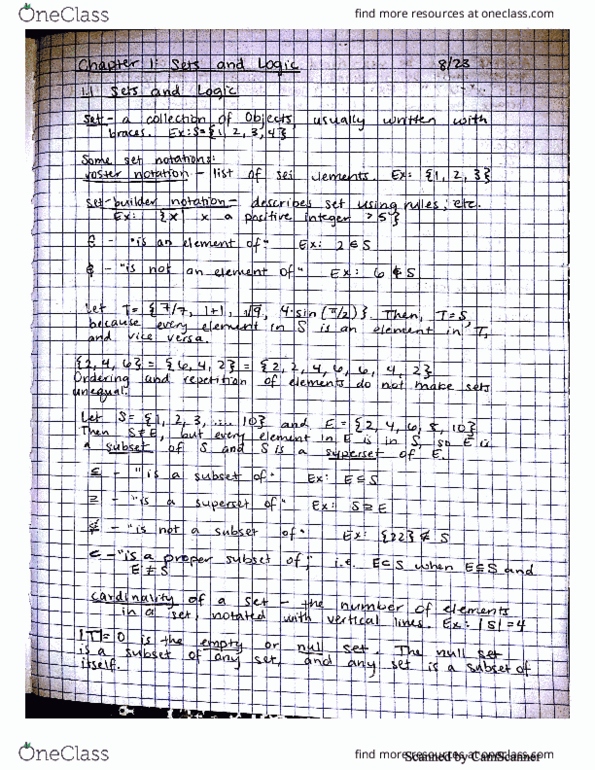 OneClass
find more resources at oneclass.com
Chapter 1: Sets and Logic 8/23
1.1 Sets and Logic
Set - a collection of Objects, usually written with
braces. Ex: S={1, 2, 3, 4}
Some set notations:
roster notation - list of set elements. Ex: {1, 2, 3}
set-builder notation - describes set using rules, etc.
Ex: {x| x a positive integer >5}
∈ - "is an element of" Ex: 2∈S
∉ - "is not an element of" Ex: 6∉S
Let T= {7/7, 1+1, √9, 4·sin(π/2)}. Then, T=S,
because every element in S is an element in T,
and vice versa.
{2, 4, 6} = {6, 4, 2} = {2, 2, 4, 6, 6, 4, 2}
Ordering and repetition of elements do not make sets
unequal.
Let S= {1, 2, 3, .... 10} and E = {2, 4, 6, 8, 10}
Then S≠E, but every element in E is in S, so E is
a subset of S and S is a superset of E.
⊆ - "is a subset of" Ex: E⊆S
⊇ - "is a superset of" Ex: S⊇E
⊈ - "is not a subset of" Ex: {22} ⊈ S
⊂ - "is a proper subset of," i.e. E⊂S when E⊆S and
E≠S
cardinality of a set - the number of elements
in a set, notated with vertical lines. Ex: |S|=4
|T|=0 is the empty or null set. The null set
is a subset of any set, and any set is a subset of
itself.
OneClass
find more resources at oneclass.com
Scanned by CamScanner